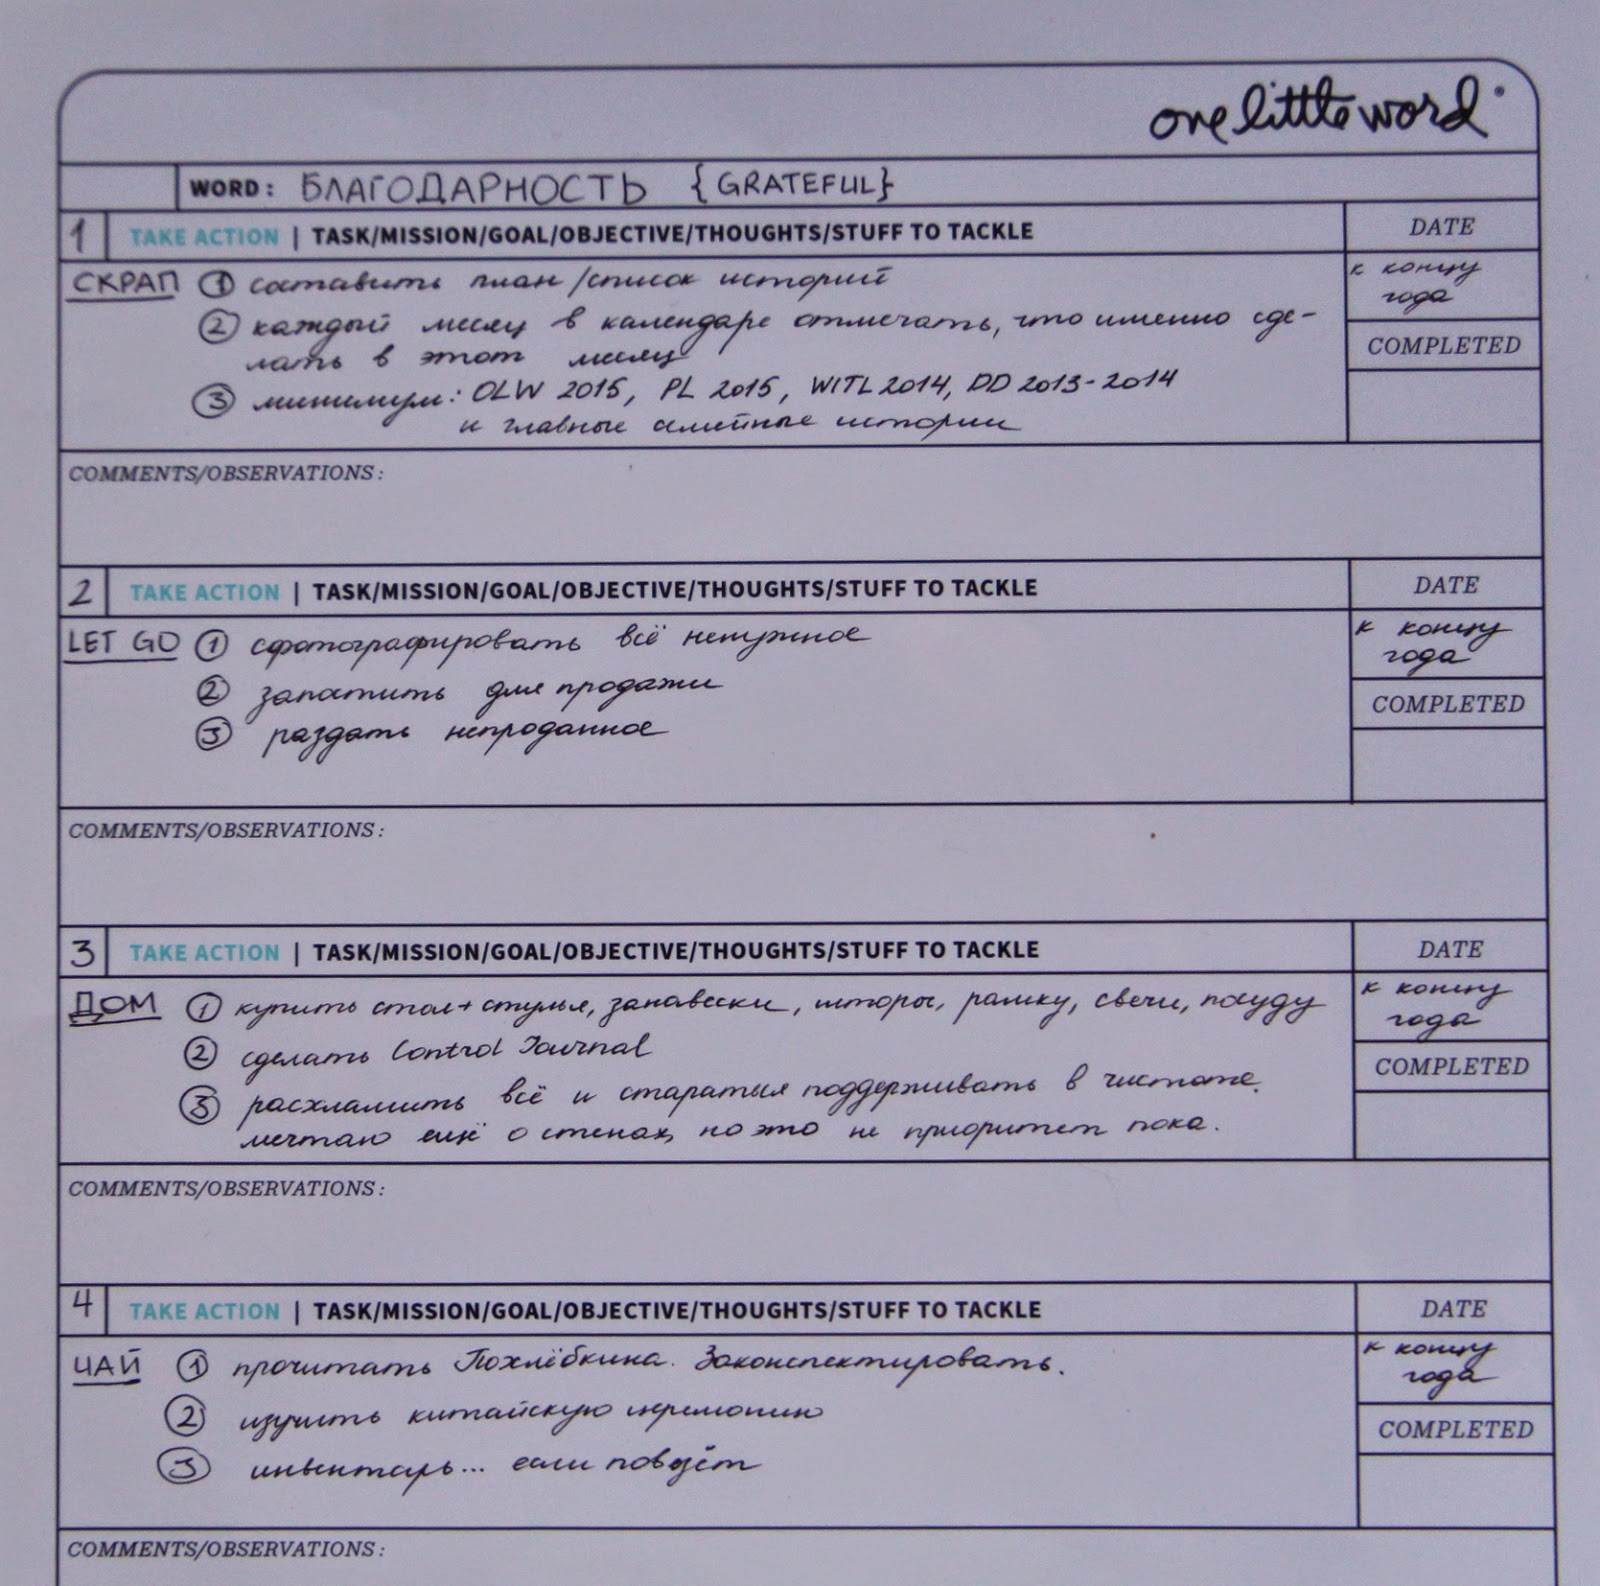 one little word®
WORD: БЛАГОДАРНОСТЬ {GRATEFUL}
1 TAKE ACTION | TASK/MISSION/GOAL/OBJECTIVE/THOUGHTS/STUFF TO TACKLE DATE
СКРАП ① составить план/список историй к концу
года
② каждый месяц в календаре отмечать, что именно сде-
лать в этот месяц COMPLETED
③ минимум: OLW 2015, PL 2015, WITL 2014, DD 2013-2014
и главные семейные истории
COMMENTS/OBSERVATIONS:
2 TAKE ACTION | TASK/MISSION/GOAL/OBJECTIVE/THOUGHTS/STUFF TO TACKLE DATE
LET GO ① сфотографировать всё ненужное к концу
года
② запостить для продажи COMPLETED
③ раздать непроданное
COMMENTS/OBSERVATIONS:
3 TAKE ACTION | TASK/MISSION/GOAL/OBJECTIVE/THOUGHTS/STUFF TO TACKLE DATE
ДОМ ① купить стол+стулья, занавески, шторы, рамку, свечи, посуду к концу
года
② сделать Control Journal COMPLETED
③ расхламить всё и стараться поддерживать в чистоте.
мечтаю ещё о стенах, но это не приоритет пока.
COMMENTS/OBSERVATIONS:
4 TAKE ACTION | TASK/MISSION/GOAL/OBJECTIVE/THOUGHTS/STUFF TO TACKLE DATE
ЧАЙ ① прочитать Похлёбкина. Законспектировать. к концу
года
② изучить китайскую церемонию COMPLETED
③ инвентарь... если повезёт
COMMENTS/OBSERVATIONS: